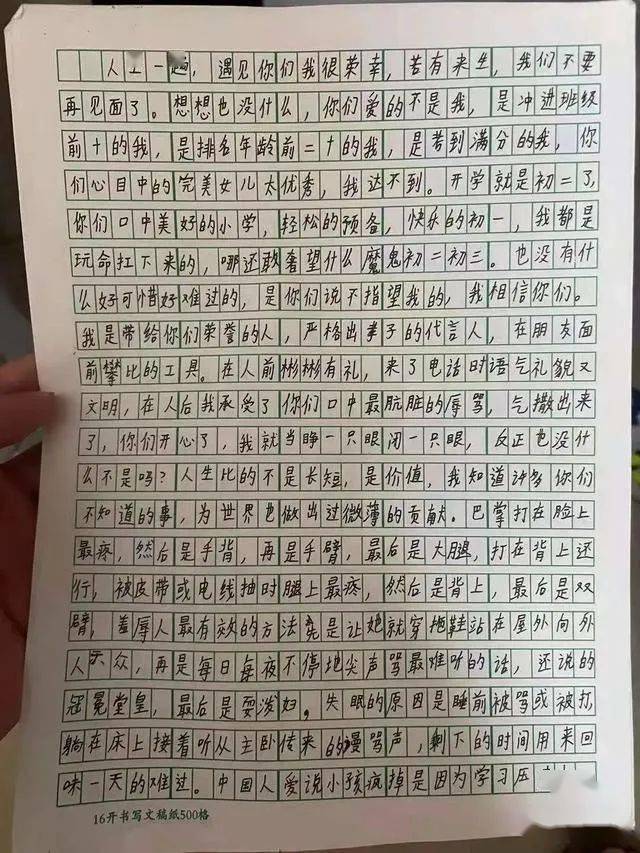 人生一趟，遇见你们我很荣幸，若有来生，我们不要
再见面了。想想也没什么，你们爱的不是我，是冲进班级
前十的我，是排名年龄前二十的我，是考到满分的我，你
们心目中的完美女儿太优秀，我达不到。开学就是初二了，
你们口中美好的小学，轻松的预备，快乐的初一，我都是
玩命扛下来的，哪还敢奢望什么魔鬼初二初三。也没有什
么好可惜好难过的，是你们说不指望我的，我相信你们。
我是带给你们荣誉的人，严格出孝子的代言人，在朋友面
前攀比的工具。在人前彬彬有礼，来了电话时语气礼貌又
文明，在人后我承受了你们口中最肮脏的辱骂，气撒出来
了，你们开心了，我就当睁一只眼闭一只眼，反正也没什
么不是吗？人生比的不是长短，是价值，我知道许多你们
不知道的事，为世界也做出过微薄的贡献。巴掌打在脸上
最疼，然后是手背，再是手臂，最后是大腿，打在背上还
行，被皮带或电线抽时腿上最疼，然后是背上，最后是双
臂，羞辱人最有效的方法先是让她就穿拖鞋站在屋外向外
人示众，再是每日每夜不停地尖声骂最难听的话，还说的
冠冕堂皇，最后是耍泼妇。失眠的原因是睡前被骂或被打，
躺在床上接着听从主卧传来的谩骂声，剩下的时间用来回
味一天的难过。中国人爱说小孩疯掉是因为学习压
16开书写文稿纸500格